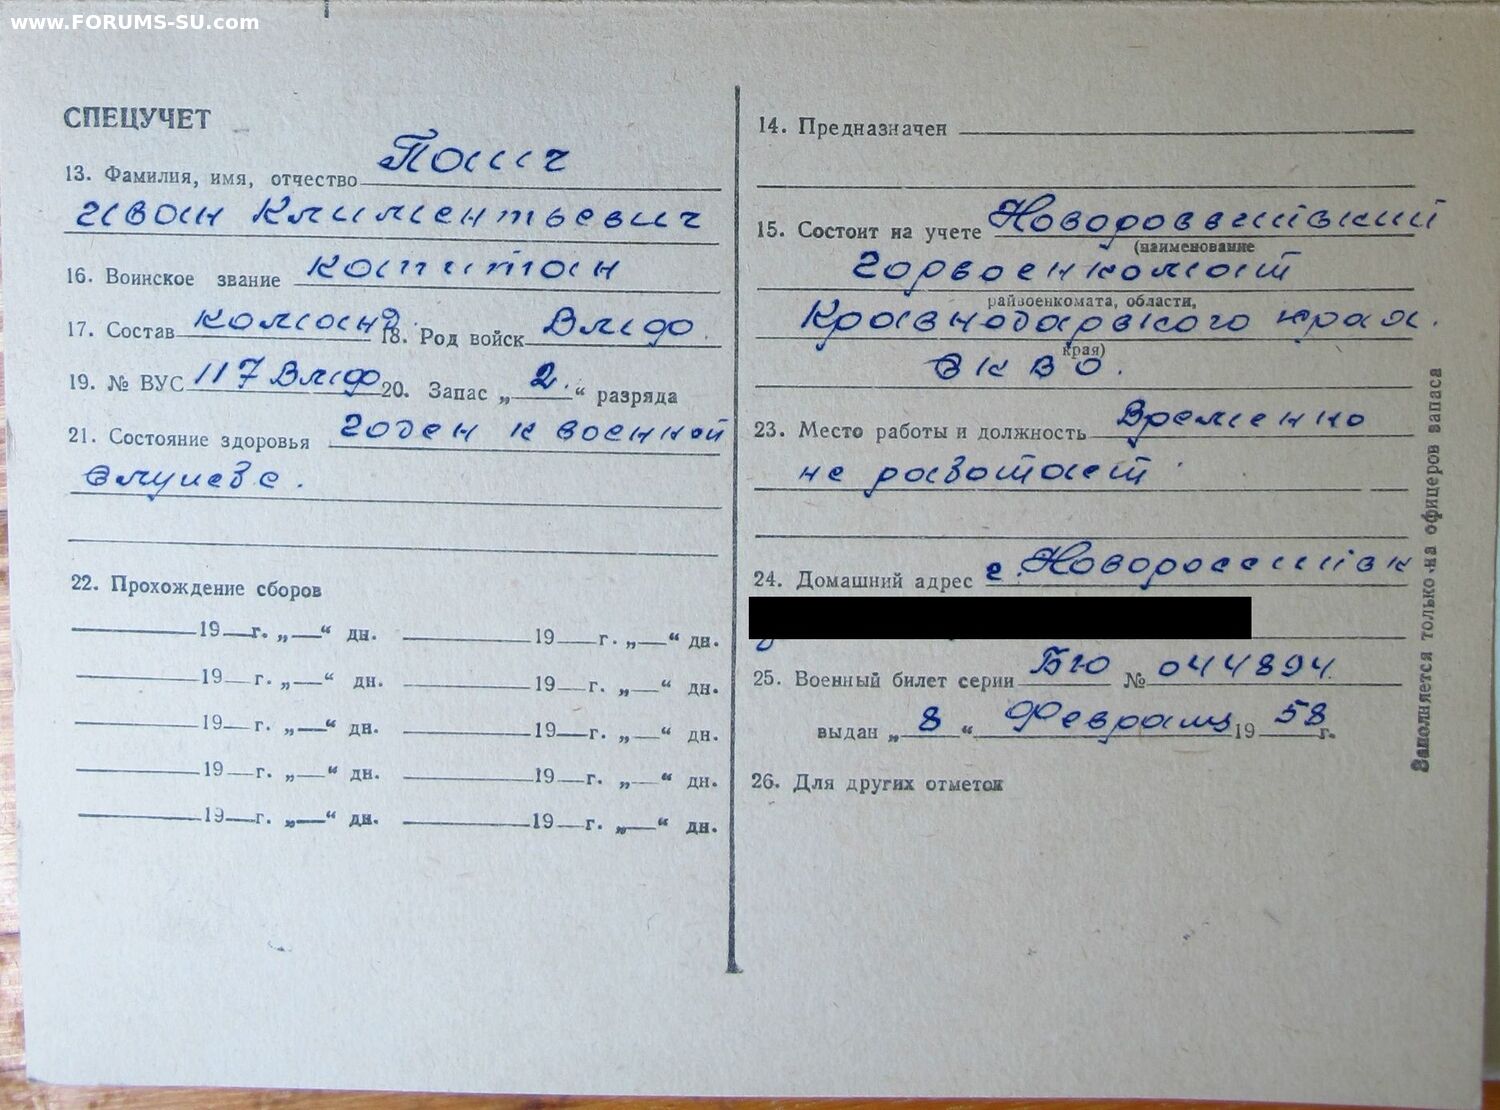 www.FORUMS-SU.com
СПЕЦУЧЕТ
13. Фамилия, имя, отчество
Иван Климентьевич
16. Воинское звание капитан
17. Состав команд. 18. Род войск ВМФ.
19. № ВУС 117 ВМФ 20. Запас „2.“ разряда
21. Состояние здоровья годен к военной
службе.
22. Прохождение сборов
19 г. „ “ дн. 19 г. „ “ дн.
19 г. „ “ дн. 19 г. „ “ дн.
19 г. „ “ дн. 19 г. „ “ дн.
19 г. „ “ дн. 19 г. „ “ дн.
19 г. „ “ дн. 19 г. „ “ дн.
14. Предназначен
15. Состоит на учете Новороссийский
(наименование
горвоенкомат
райвоенкомата, области,
Краснодарского края.
края)
СКВО.
23. Место работы и должность Временно
не работает.
24. Домашний адрес г. Новороссийск
25. Военный билет серии БЮ № 044894.
выдан „8“ Февраля 1958 г.
26. Для других отметок
Заполняется только на офицеров запаса